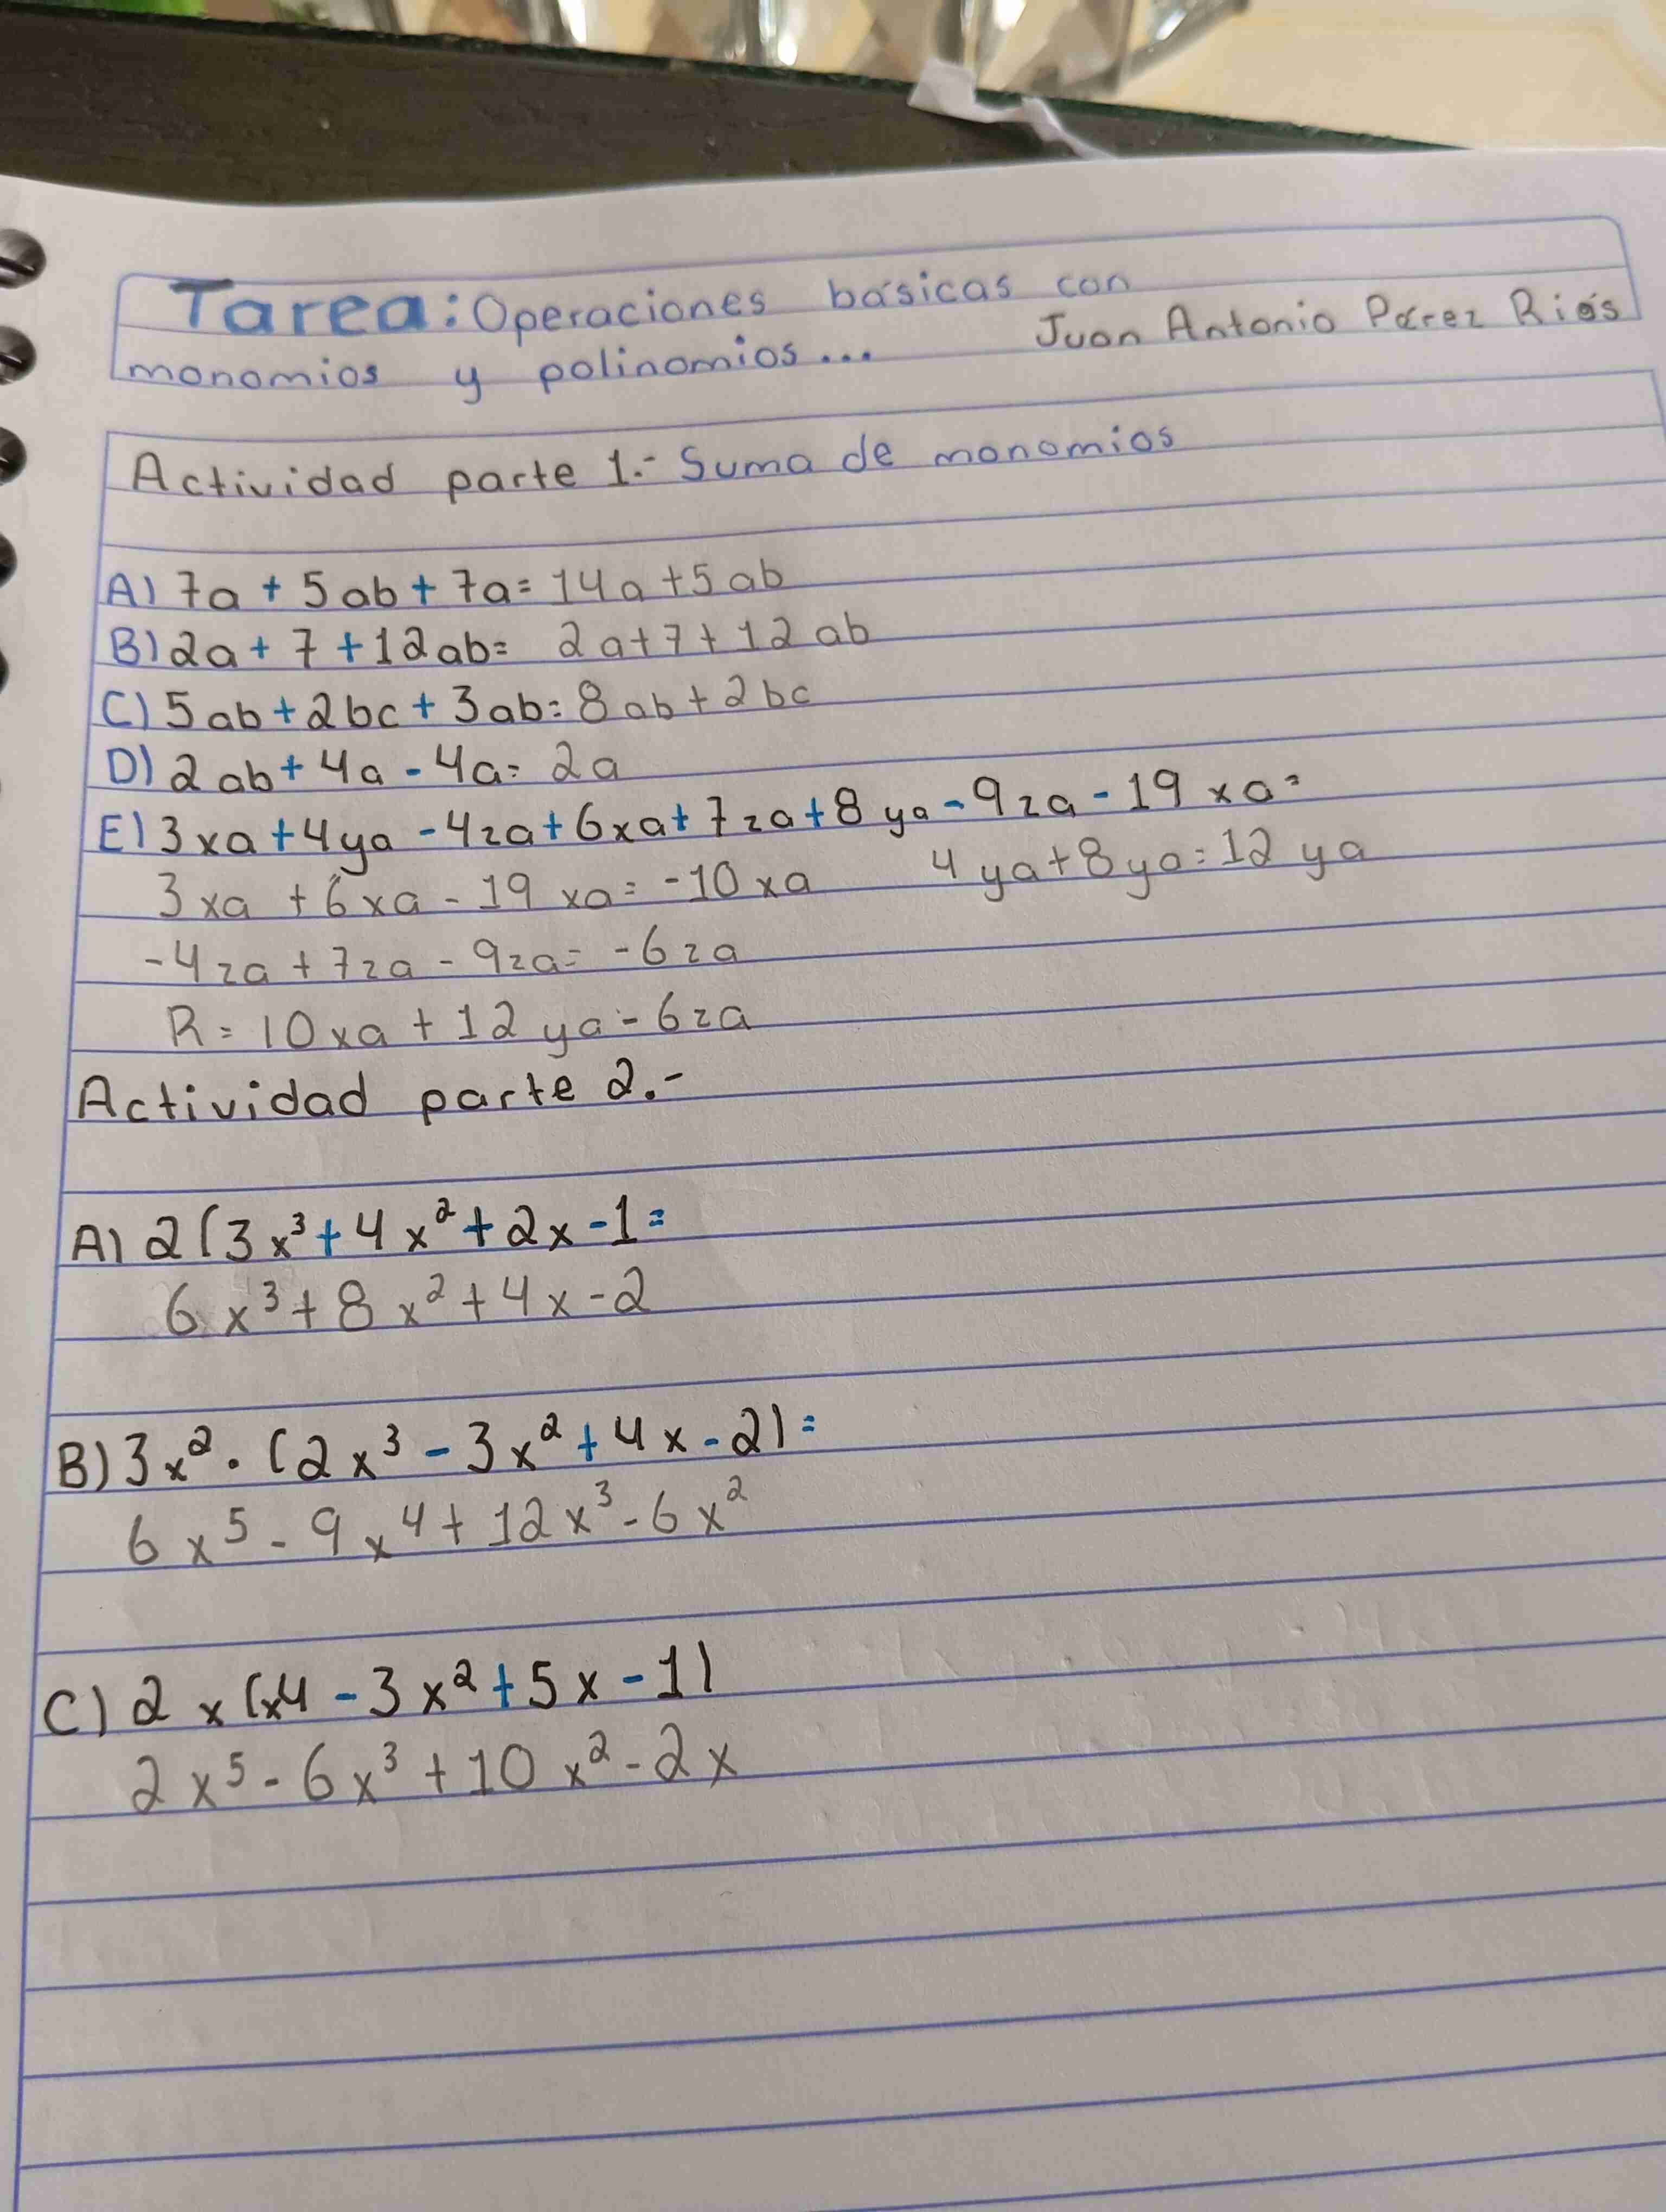 Tarea: Operaciones básicas con
monomios y polinomios... Juan Antonio Pérez Ríos
Actividad parte 1.- Suma de monomios
A) 7a + 5ab + 7a = 14a + 5ab
B) 2a + 7 + 12ab = 2a + 7 + 12ab
C) 5ab + 2bc + 3ab = 8ab + 2bc
D) 2ab + 4a - 4a = 2a
E) 3xa + 4ya - 4za + 6xa + 7za + 8ya - 9za - 19xa =
3xa + 6xa - 19xa = -10xa 4ya + 8ya = 12ya
-4za + 7za - 9za = -6za
R = 10xa + 12ya - 6za
Actividad parte 2.-
A) 2(3x³ + 4x² + 2x - 1 =
6x³ + 8x² + 4x - 2
B) 3x² · (2x³ - 3x² + 4x - 2) =
6x⁵ - 9x⁴ + 12x³ - 6x²
C) 2x(x4 - 3x² + 5x - 1)
2x⁵ - 6x³ + 10x² - 2x